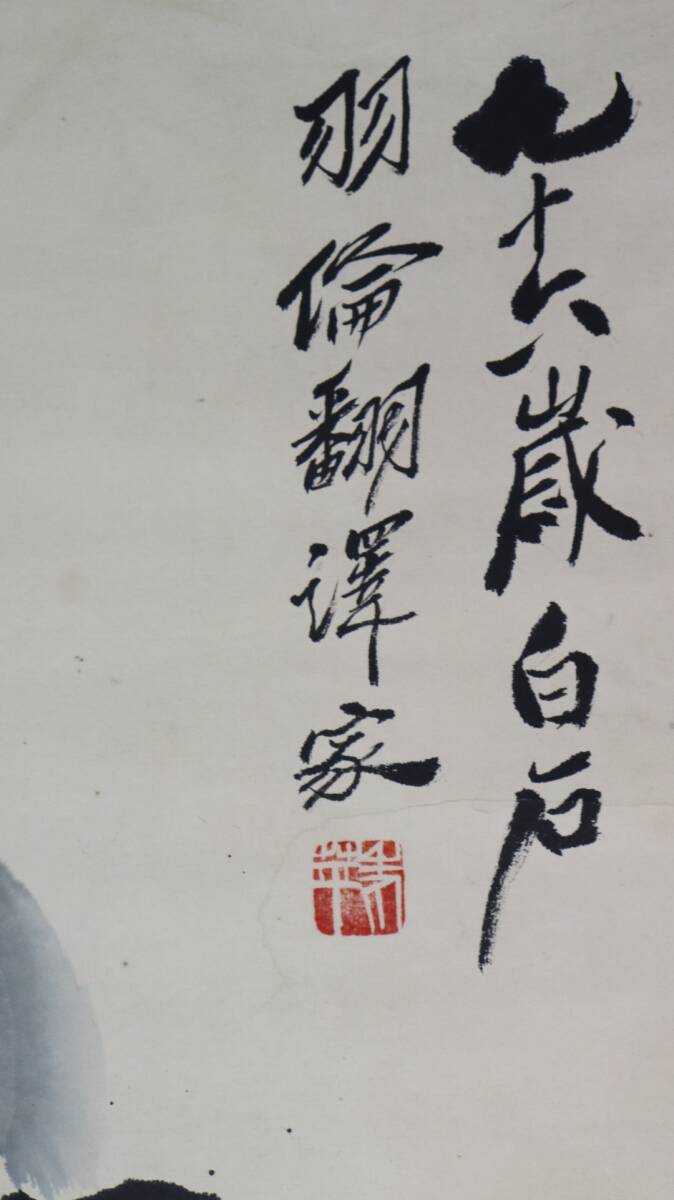 九十六歲白石
羽倫翻譯家